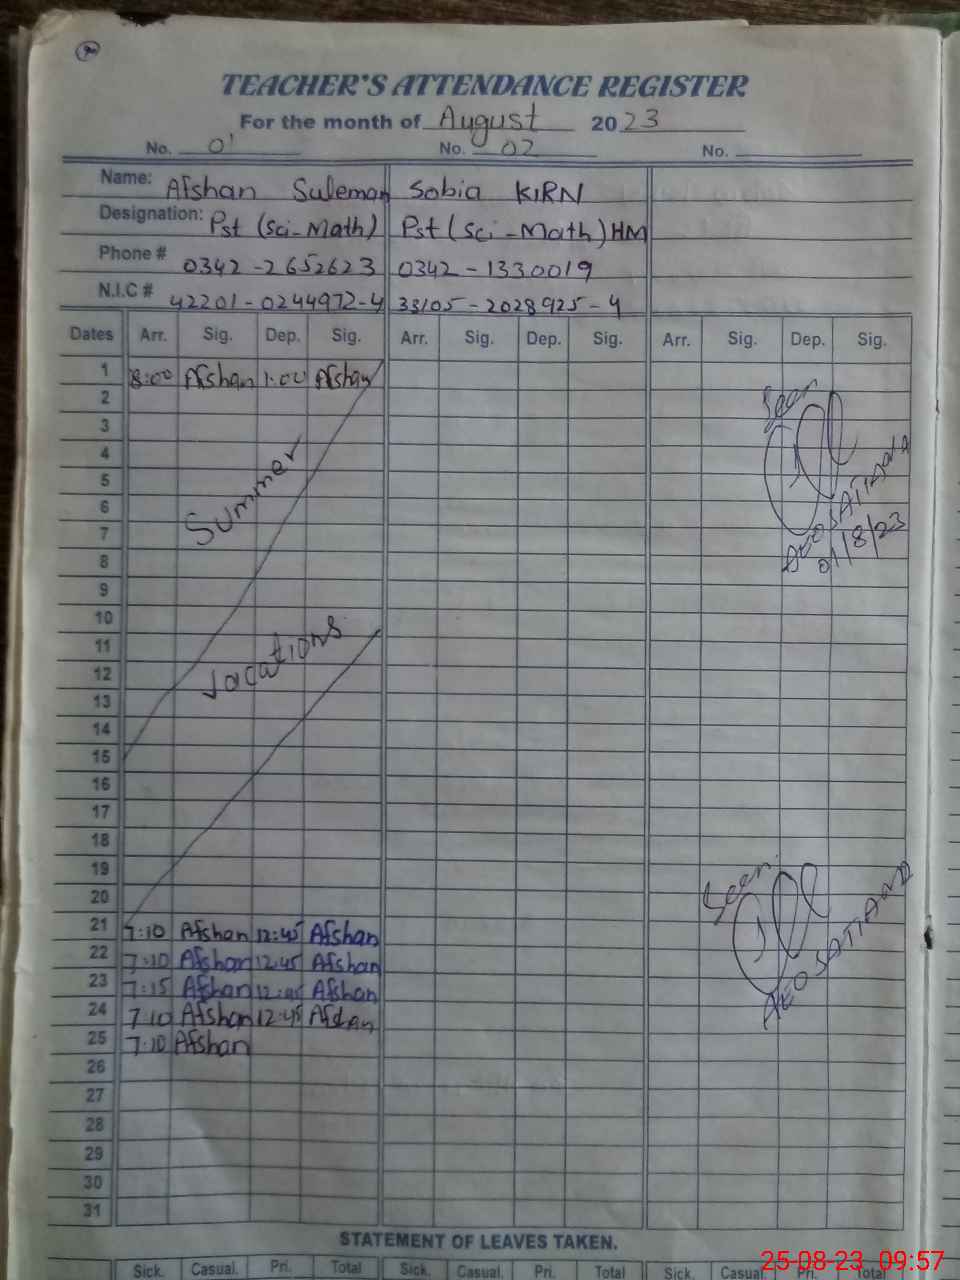 TEACHER'S ATTENDANCE REGISTER
For the month of August 2023
No. 01 No. 02 No.
Name: Afshan Suleman Sobia KIRN
Designation: Pst (Sci-Math) Pst (Sci-Math) HM
Phone # 0342-2652623 0342-1330019
N.I.C # 42201-0244972-4 33105-2028925-4
Dates Arr. Sig. Dep. Sig. Arr. Sig. Dep. Sig. Arr. Sig. Dep. Sig.
1 8:00 Afshan 1:00 Afshan
2 Seen
3
4
5
6 Summer
7
8 01/8/23
9
10
11 Vacations
12
13
14
15
16
17
18
19
20 Seen
21 7:10 Afshan 12:45 Afshan
22 7:10 Afshan 12:45 Afshan
23 7:15 Afshan 12:45 Afshan
24 7:10 Afshan 12:45 Afshan
25 7:10 Afshan
26
27
28
29
30
31
STATEMENT OF LEAVES TAKEN.
Sick. Casual. Pri. Total Sick. Casual. Pri. Total Sick. Casual. Pri. Total
25-08-23 09:57